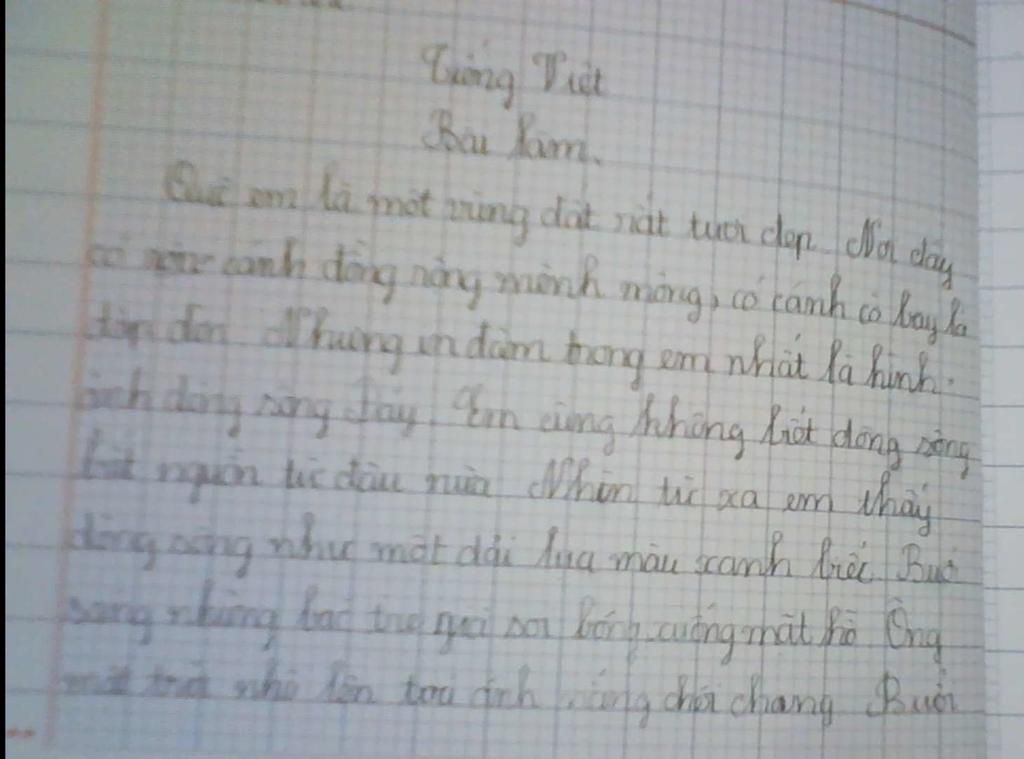 Tiếng Việt
Bài làm.
Quê em là một vùng đất rất tươi đẹp. Nơi đây
có cánh đồng rộng mênh mông, có cánh cò bay lả
dập dờn Nhưng ấn đậm trong em nhất là hình
ảnh dòng sông Đáy. Em cũng không biết dòng sông
bắt nguồn từ đâu nữa Nhìn từ xa em thấy
dòng sông như một dải lụa màu xanh biếc. Buổi
sáng những bác tre già soi bóng xuống mặt hồ Ông
mặt trời nhô lên toả ánh nắng chói chang Buổi